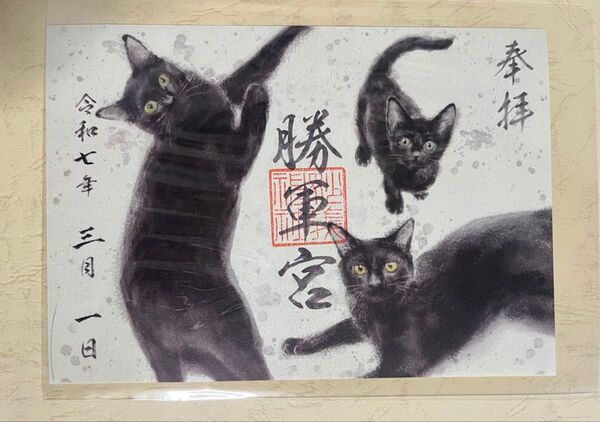 奉拝
勝軍宮
令和七年 三月 一日